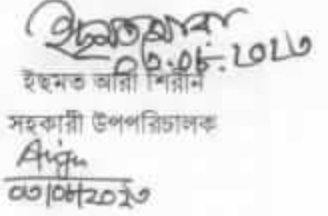 ইছমত আরা
০৩.০৮.২০২৩
ইছমত আরা শিরীন
সহকারী উপপরিচালক
০৩/০৮/২০২৩